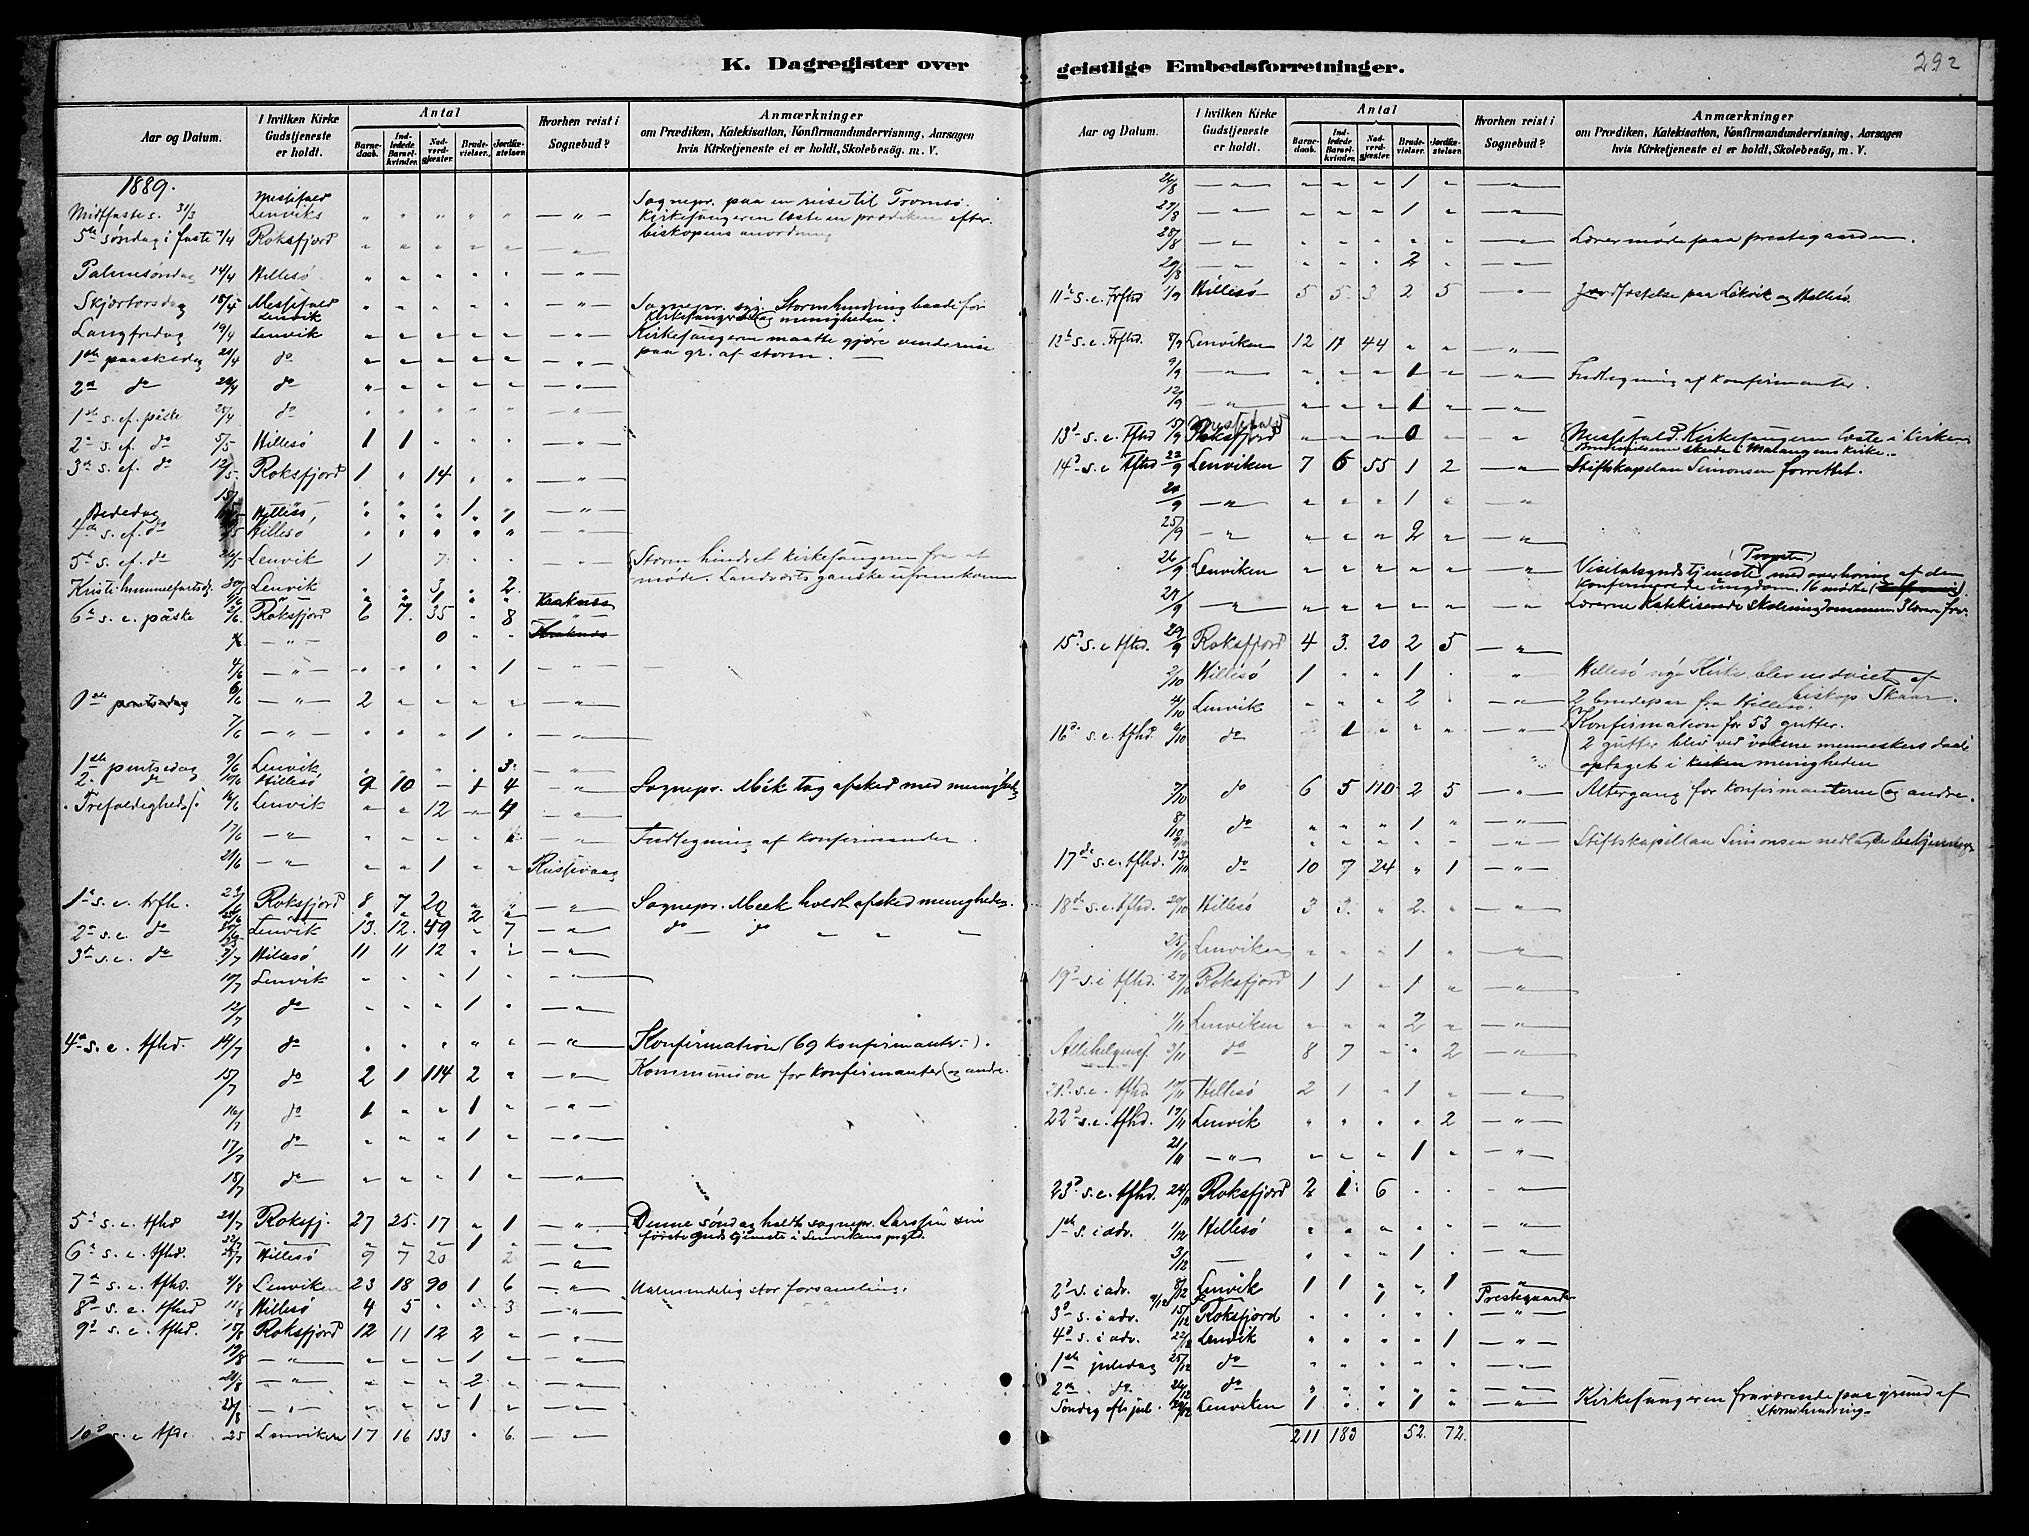 K. Dagregister over
Aar og Datum. | I hvilken Kirke Gudstjeneste er holdt. | Antal | Hvorhen reist i Sognebud? | Anmærkninger
Barne-daab. | Ind-ledede Barsel-kvinder. | Nad-verd-gjester. | Brude-vielser. | Jordfæ-stelser.
om Prædiken, Katekisation, Konfirmandundervisning, Aarsagen
hvis Kirketjeneste ei er holdt, Skolebesøg. m. V.
1889.
Midtfastes. 31/3 | Messefald Lenviks | " | " | " | " | " | — " — | Sognepr. paa en reise til Tromsö.
Kirkesangeren læste en prædiken efter
biskopens anordning
5te söndag i faste 7/4 | Roksfjord
Palmesöndag 14/4 | Hillesö
Skjærtorsdag 18/4 | Messefald Lenvik | Sognepr. syg. Stormhindring baade for
kirkesanger og menigheden.
Langfredag 19/4 | Lenvik | Kirkesangeren maatte gjöre vendereise
paa gr. af storm.
1ste paaskedag 21/4 | do
2n do 22/4 | do
1ste s. ef. påske 28/4 | do
2n s. ef. do 5/5 | Hillesö | 1 | 1
3n s. ef. do 12/5 | Roksfjord | 1 | " | 14
Bededag | Hillesö
4de s. ef. do | Hillesö
5te s. ef. do 26/5 | Lenvik | 1 | 7 | Storm hindret kirkesangeren fra at
möde. Landværts ganske ufremkommelig
Kristi himmelfartsdg. 30/5 | Lenvik | 3 | 2
6te s. e. påske 2/6 | Roksfjord | 6 | 7 | 35 | 8
4/6 | — " — | 1
6/6 | — " — | 2
7/6 | — " — | 1
1ste pintsedag 9/6 | Lenvik | 3
2. do 10/6 | Hillesö | 9 | 10 | — | 1 | 4 | Sognepr. Mêk tog afsked med menighed.
Trefoldigheds s. 16/6 | Lenvik | " | " | 12 | " | 4
17/6 | — " — | Indlegning af konfirmander.
21/6 | — " — | " | " | 1 | " | " | Russevaag
1s s. e. trfh. 23/6 | Roksfjord | 8 | 7 | 20 | Sognepr. Meek holdt afsked menigheden.
2n s. e. do 30/6 | Lenvik | 13 | 12 | 49 | " | 7 | do do
3d s. e. do 7/7 | Hillesö | 11 | 11 | 12
10/7 | Lenvik | 1
12/7 | do | 1
4de s. e. tfhd. 14/7 | do | Konfirmation (69 konfirmanter).
15/7 | do | 2 | 1 | 114 | 2 | " | Kommunion for konfirmanter og andre.
16/7 | do | 1 | " | " | 1
17/7 | do | 1
18/7 | do | 1
5te s. e. tfhd 21/7 | Roksfj. | 27 | 25 | 17 | " | 1 | Denne söndag holdt sognepr. Larssen sin
förste gudstjeneste i Lenvikens prgld.
6te s. e. tfhd. 28/7 | Hillesö | 9 | 7 | 20 | 2
7de s. e. tfhd. 4/8 | Lenviken | 23 | 18 | 90 | 1 | 6 | Ualmindelig stor forsamling.
8de s. e. tfhd 11/8 | Hillesö | 4 | 5 | " | " | 3
9d s. e. tfhd. 18/8 | Roksfjord | 12 | 11 | 12 | 2 | "
19/8 | — " — | 1
21/8 | — " — | 2
— " — | 1
10d s. e tfh. 25 | Lenviken | 17 | 16 | 133 | " | 6
geistlige Embedsforretninger.
292
Aar og Datum. | I hvilken Kirke Gudstjeneste er holdt. | Antal | Hvorhen reist i Sognebud? | Anmærkninger
Barne-daab. | Ind-ledede Barsel-kvinder. | Nad-verd-gjester. | Brude-vielser. | Jordfæ-stelser.
om Prædiken, Katekisation, Konfirmandundervisning, Aarsagen
hvis Kirketjeneste ei er holdt, Skolebesög, m. V.
26/8 | — " — | 1
27/8 | — " — | 1
28/8 | — " — | Lærermöde paa prestegaarden.
29/8 | — " — | 2
11te s. e. trfhd 1/9 | Hillesö | 5 | 5 | 3 | 2 | 5 | Jordfæstelse paa Låkvik og Hillesö
12te s. e. Trfhd. 8/9 | Lenviken | 12 | 17 | 44
9/9 | — " — | 1 | Indlegning af konfirmanter.
12/9 | — " — | 1
13d s. e. tfhd 15/9 | Messefald Roksfjord | 0 | Messefald. Kirkesangeren læste i kirken
Brudevielserne skede i Malangens kirke.
14d s. e tfhd 22/9 | Lenviken | 7 | 6 | 55 | 1 | 2 | Stiftskapelan Simonsen forrettet.
24/9 | — " — | 1
25/9 | — " — | 2
26/9 | Lenviken | Visitatsgudstjeneste (Propsten) med overhöring af den
konfirmerede ungdom. 16 mödte
27/9 | — " — | Lærerne katekiserede skoleungdommen.
15d s. e tfhd. 29/9 | Roksfjord | 4 | 3 | 20 | 2 | 5
2/10 | Hillesö | 1 | " | " | 1 | Hillesö nye Kirke blev indviet af
biskop Skaar.
4/10 | Lenvik | 2 | 2 brudepar fra Hillesö.
16d s. e. tfhd. 6/10 | do | 1 | Konfirmation for 53 gutter.
2 gutter blev ved voksne menneskers daab
optaget i kirken menigheden
7/10 | do | 6 | 5 | 110 | 2 | 5 | Altergang for konfirmanterne og andre.
8/10 | do | 1
Stiftskapellan Simonsen nedlagde betjeningen
17de s. e tfhd. 13/10 | do | 10 | 7 | 24 | " | 1
18de s. e. tfhd. 20/10 | Hillesö | 3 | 3 | " | 2
25/10 | Lenviken | 1
19d s. e tfhd. 27/10 | Roksfjord | 1 | 1 | " | 1
1/11 | Lenviken | 2
Allehelgensf. 3/11 | do | 8 | 7 | " | " | 2
21d s. e. tfhd. | Hillesö | 2 | 1 | " | 1
22d s. e. tfhd. 17/11 | Lenvik | 2
21/11 | — " — | 1
23d s. e. tfhd. 24/11 | Roksfjord | 2 | 1 | 6
1ste s. i adv. 1/12 | Hillesö
3/12 | 1
2d s. i adv. 8/12 | Lenvik | 1 | 1 | " | " | 1
9/12 | 1 | Prestegaarden
3d s. i adv. 15/12 | Roksfjord
4d s. i adv. 22/12 | Lenvik | 1
1ste juledag 25/12 | do
2n do. 26/12 | do
Söndag eft. jul. 29/12 | Lenviken | 1 | " | " | 1 | " | Kirkesangeren fraværende paa grund af
stormhindring
211 | 183 | 52. | 72.